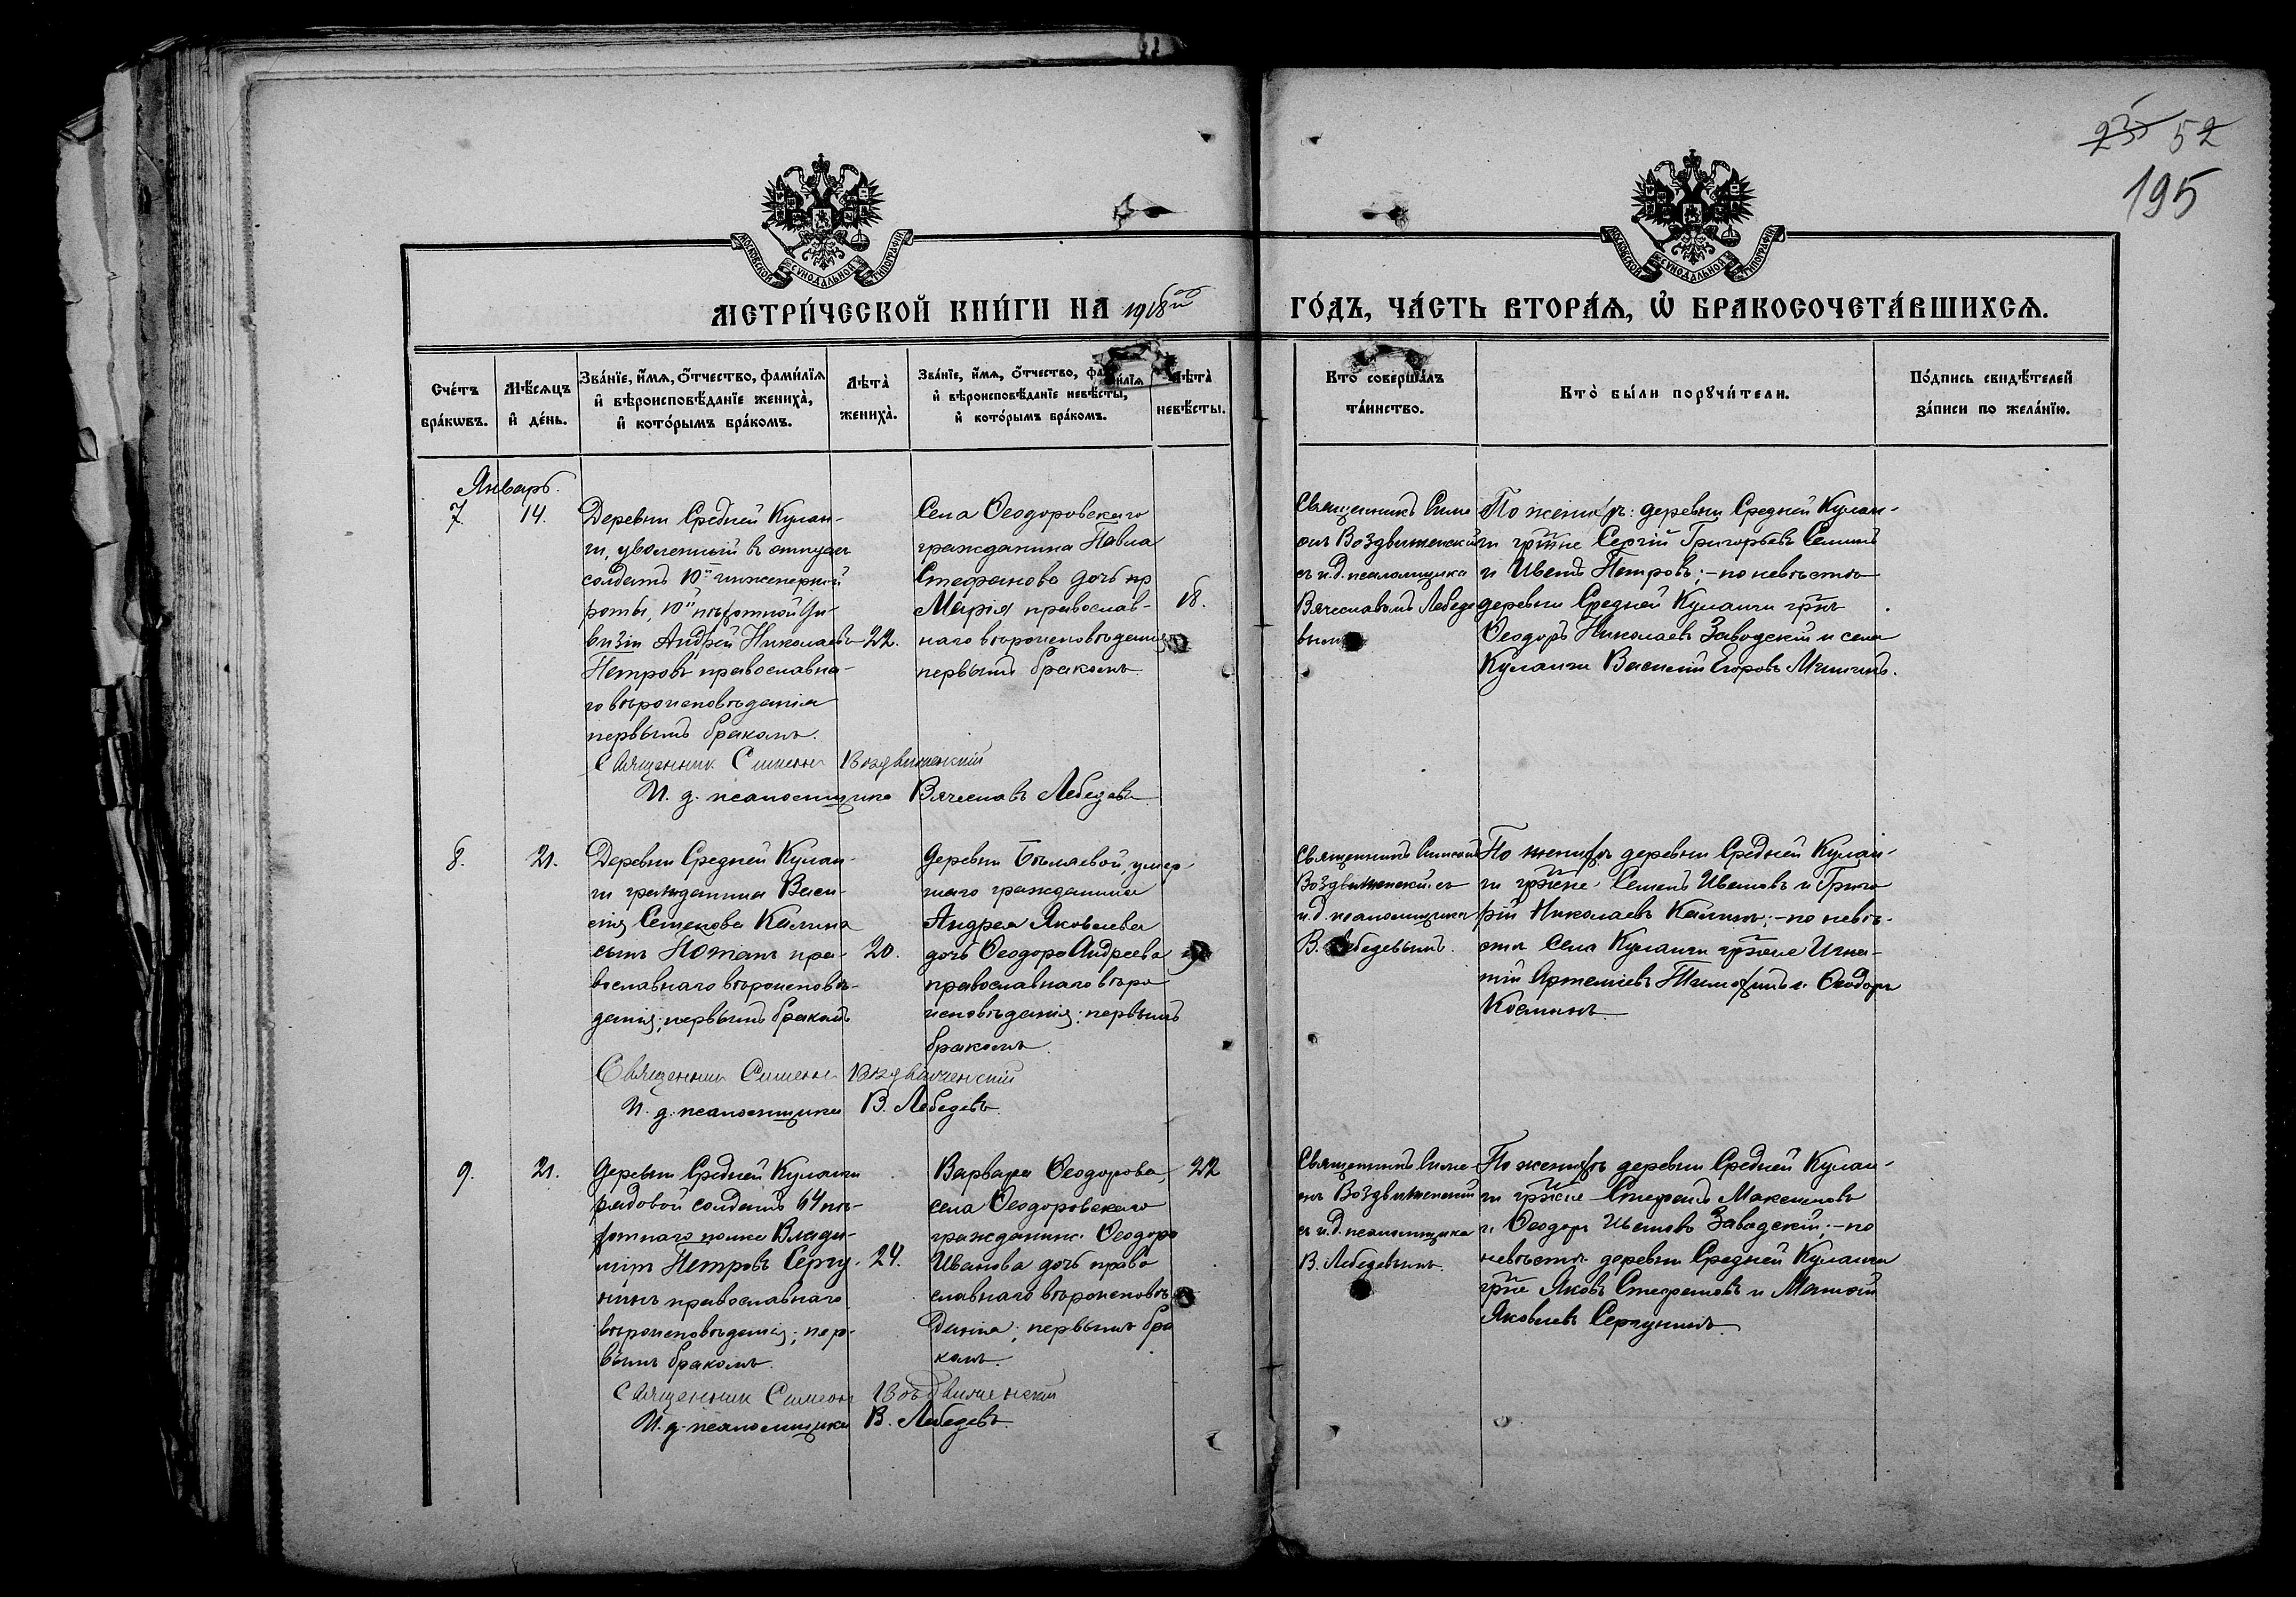 23 52
195
МОСКОВСКОЙ СѴНОДАЛЬНОЙ ТИПОГРАФІИ
МОСКОВСКОЙ СѴНОДАЛЬНОЙ ТИПОГРАФІИ
МЕТРИ́ЧЕСКОЙ КНИ́ГИ НА 1918ый ГО́ДЪ, ЧА́СТЬ ВТОРА́Ѧ, Ѽ БРАКОСОЧЕТА́ВШИХСѦ.
Сче́тъ бра́кѡвъ.
Мѣ́сѧцъ и҆ де́нь.
Зва́нїе, и҆́мѧ, ѻ҆́тчество, фами́лїѧ
и҆ вѣроисповѣ́данїе жениха̀,
и҆ кото́рымъ бра́комъ.
Лѣта̀ жениха̀.
Зва́нїе, и҆́мѧ, ѻ҆́тчество, фами́лїѧ
и҆ вѣроисповѣ́данїе невѣ́сты,
и҆ кото́рымъ бра́комъ.
Лѣта̀ невѣ́сты.
Кто̀ соверша́лъ
та́инство.
Кто̀ бы́ли порꙋчи́тели.
По́дпись свидѣ́телей
за́писи по жела́нїю.
Январь.
7. 14.
Деревни Средней Кулан-
ги, уволенный въ отпускъ
солдатъ 10й инженерной
роты, 10й пѣхотной ди-
визіи Андрей Николаевъ
Петровъ православна-
го вѣроисповѣданія
первымъ бракомъ.
22.
Села Ѳеодоровскаго
гражданина Павла
Стефанова дочь
Марія православ-
наго вѣроисповѣданія
первымъ бракомъ.
18.
Священникъ Симе
онъ Воздвиженскій
съ и.д. псаломщика
Вячеславомъ Лебеде
вымъ
По женихѣ: деревни Средней Кулан-
ги гр-не Сергій Григорьевъ Семинъ
и Иванъ Петровъ; – по невѣстѣ
деревни Средней Куланги гр-нъ
Ѳеодоръ Николаевъ Заводскій и села
Куланги Василій Егоровъ Мишинъ.
Священник Симеон Воздвиженскій
И. д. псаломщика Вячеславъ Лебедевъ
8. 21.
Деревни Средней Кулан-
ги гражданина Васи-
лія Семенова Калина
сынъ Іоаннъ пра-
вославнаго вѣроисповѣ-
данія; первымъ бракомъ
20.
Деревни Бѣляевой, умер-
шаго гражданина
Андрея Яковлева
дочь Ѳеодора Андреева
православнаго вѣро
исповѣданія; первымъ
бракомъ.
Священникъ Симеонъ
Воздвиженскій съ
и.д. псаломщика
В. Лебедевымъ.
По женихѣ деревни Средней Кулан-
ги гр-не Семенъ Ивановъ и Григо
рій Николаевъ Калинъ; – по невѣ-
стѣ села Куланги гр-не Игна-
тій Артемьевъ Тимофинъ и Ѳеодоръ
Косминъ.
Священник Симеон Воздвиженскій
И. д. псаломщика В. Лебедевъ.
9. 21.
Деревни Средней Куланги
рядовой солдатъ 64 пѣ-
хотнаго полка Влади-
міръ Петровъ Сергу-
нинъ православнаго
вѣроисповѣданія; пер-
вымъ бракомъ.
24.
Варвара Ѳеодорова,
села Ѳеодоровскаго
гражданина Ѳеодора
Иванова дочь право
славнаго вѣроисповѣ
данія; первымъ бра
комъ.
22
Священникъ Симе-
онъ Воздвиженскій
съ и.д. псаломщика
В. Лебедевымъ.
По женихѣ деревни Средней Кулан-
ги гр-не Стефанъ Максимовъ
и Ѳеодоръ Ивановъ Заводскій; – по
невѣстѣ деревни Средней Куланги
гр-не Яковъ Стефановъ и Матѳей
Яковлевъ Сергунинъ.
Священник Симеон Воздвиженскій
И. д. псаломщика В. Лебедевъ.